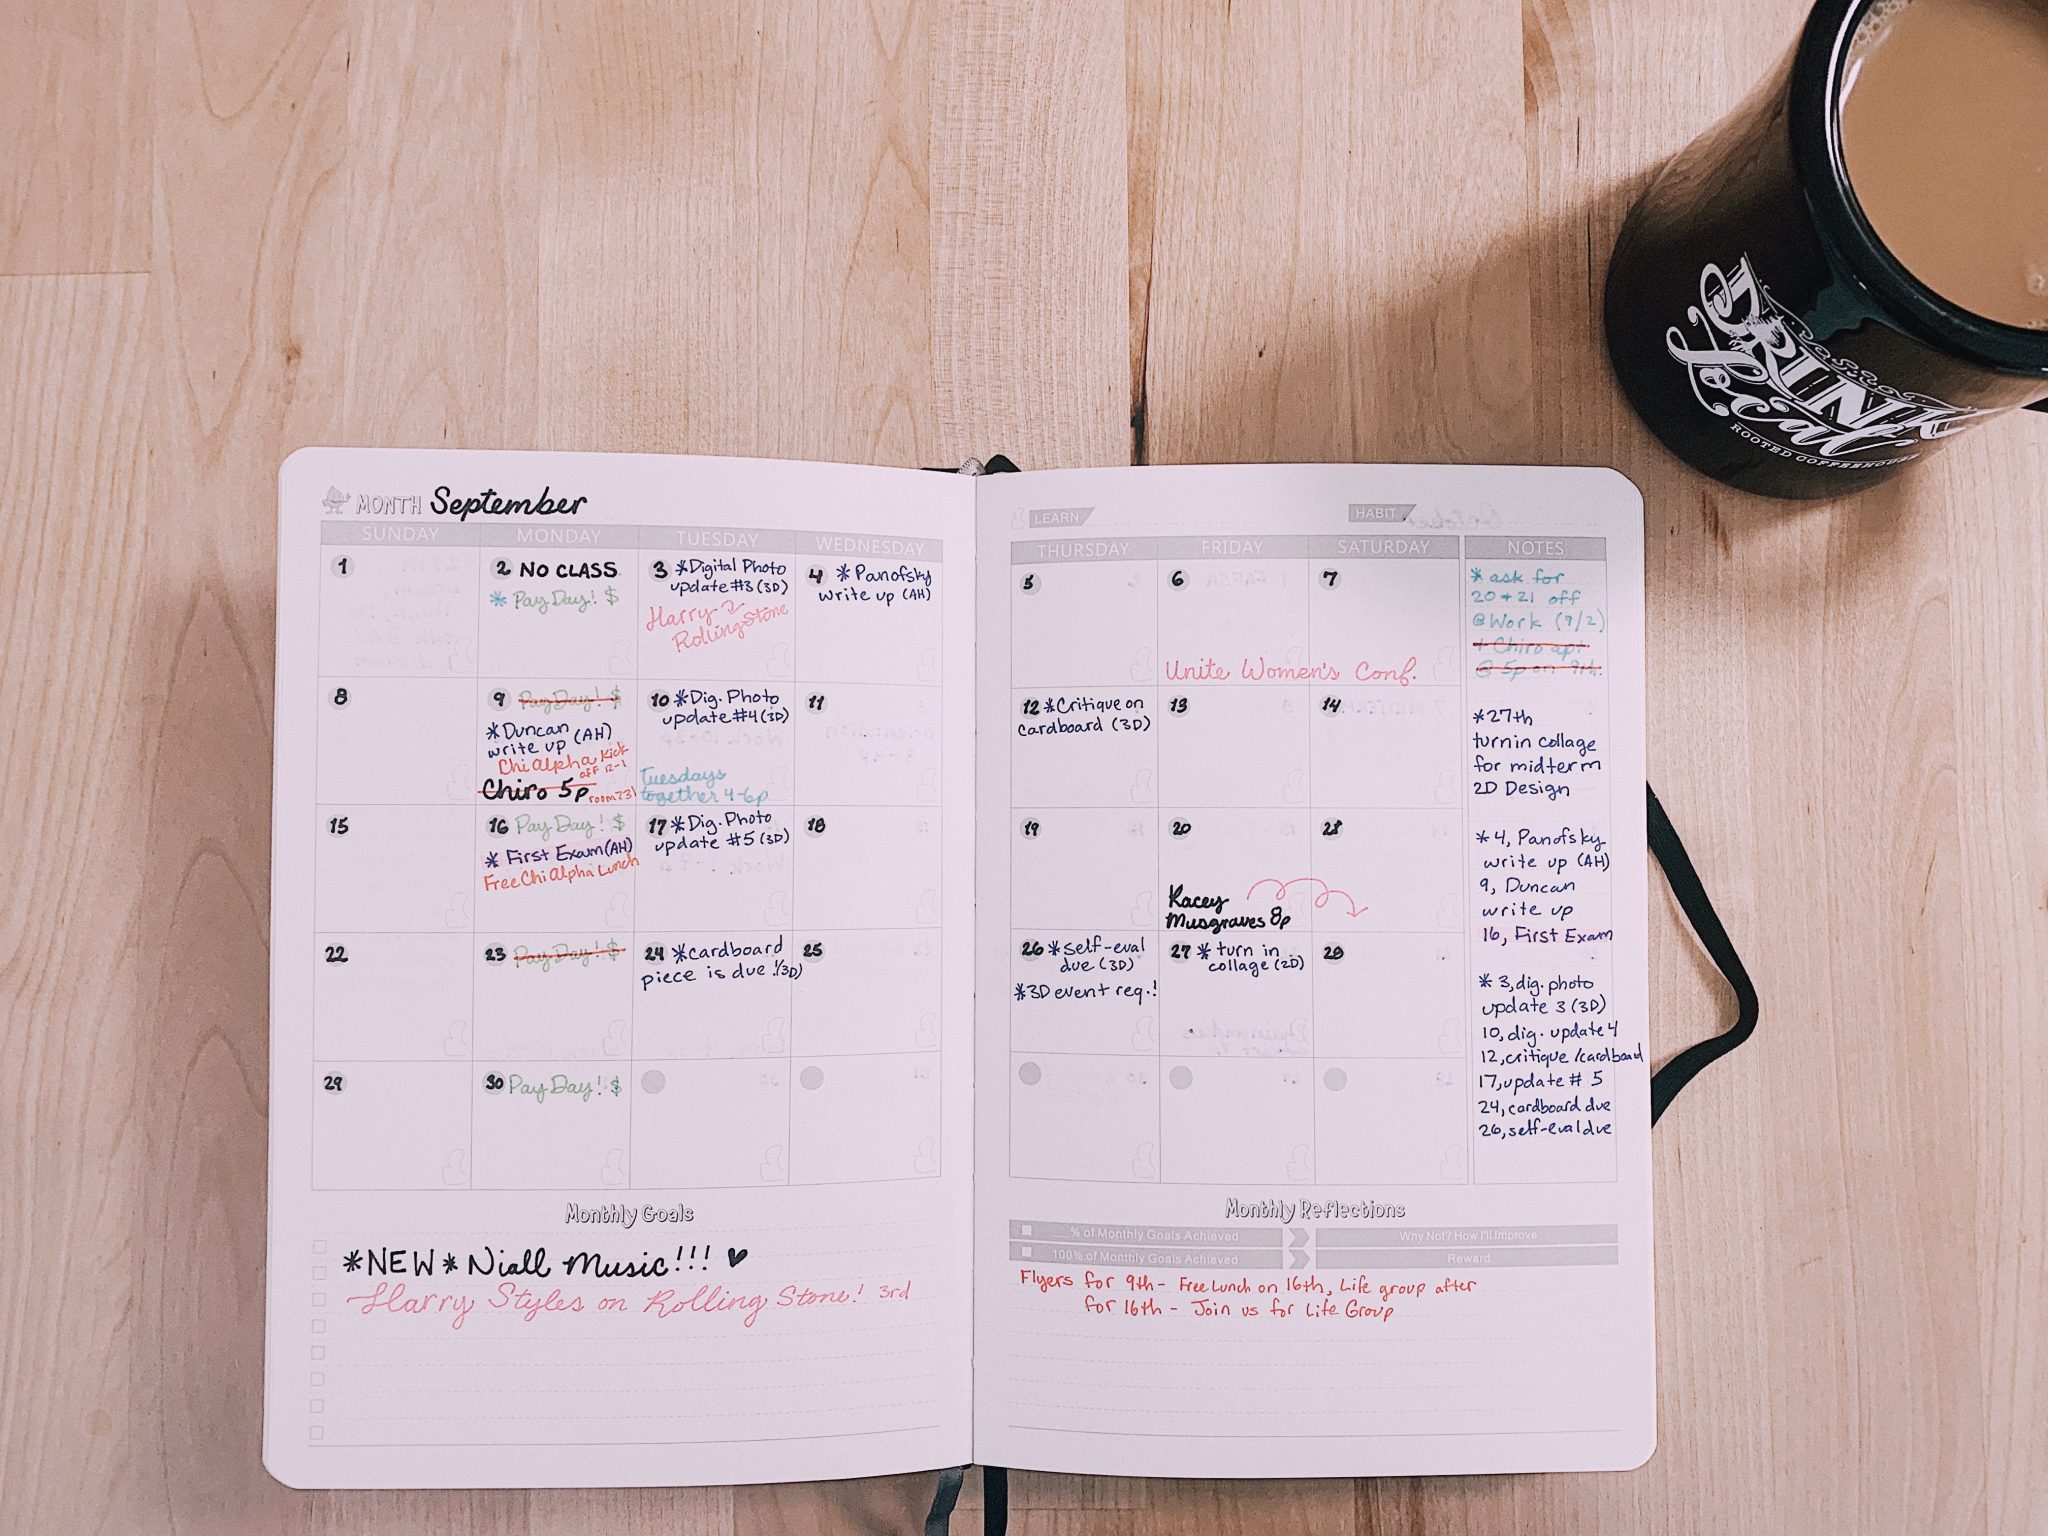 DRINK
Local
ROOTED COFFEEHOUSE
MONTH September
SUNDAY MONDAY TUESDAY WEDNESDAY
1
2 NO CLASS
* Pay Day! $
3 *Digital Photo
update #3 (3D)
Harry
Rolling Stone
4 * Panofsky
write up (AH)
8
9 Pay Day! $
*Duncan
write up (AH)
Chi Alpha Kick
off 12-1
Chiro 5p room 231
10 *Dig. Photo
update #4 (3D)
Tuesdays
together 4-6p
11
15
16 Pay Day! $
* First Exam (AH)
Free Chi Alpha Lunch
17 *Dig. Photo
update #5 (3D)
18
22
23 Pay Day! $
24 *cardboard
piece is due! (3D)
25
29
30 Pay Day! $
Monthly Goals
*NEW* Niall Music!!! ♥
Harry Styles on Rolling Stone! 3rd
LEARN HABIT
THURSDAY FRIDAY SATURDAY NOTES
5
6
7
Unite Women's Conf.
12 *Critique on
cardboard (3D)
13
14
19
20
Kacey
Musgraves 8p
21
26 *self-eval
due (3D)
*3D event req.!
27 * turn in
collage (2D)
28
* ask for
20 + 21 off
@Work (9/2)
+ Chiro apt
@ 5p on 9th.
*27th
turn in collage
for midterm
2D Design
*4, Panofsky
write up (AH)
9, Duncan
write up
16, First Exam
* 3, dig. photo
update 3 (3D)
10, dig. update 4
12, critique/cardboard
17, update # 5
24, cardboard due
26, self-eval due
Monthly Reflections
% of Monthly Goals Achieved Why Not? How I'll Improve
100% of Monthly Goals Achieved Reward
Flyers for 9th - Free Lunch on 16th, Life group after
for 16th - Join us for Life Group